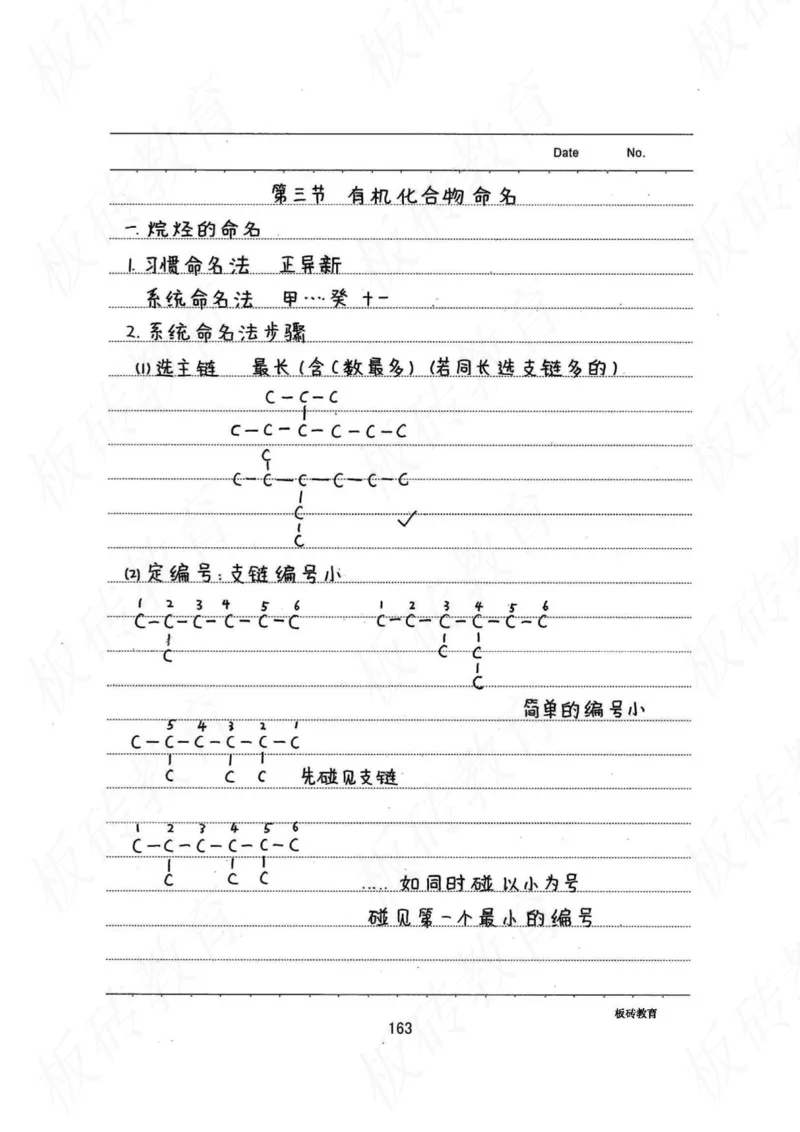 Date No.
第三节 有机化合物命名
一. 烷烃的命名
1. 习惯命名法 正异新
系统命名法 甲…癸 十一
2. 系统命名法步骤
(1) 选主链 最长(含C数最多)(若同长选支链多的)
C-C-C
C-C-C-C-C-C
C
C-C-C-C-C-C
C ✓
C
(2) 定编号:支链编号小
1 2 3 4 5 6 1 2 3 4 5 6
C-C-C-C-C-C C-C-C-C-C-C
C C C
C
简单的编号小
5 4 3 2 1
C-C-C-C-C-C
C C C 先碰见支链
1 2 3 4 5 6
C-C-C-C-C-C
C C C ..... 如同时碰以小为号
碰见第一个最小的编号
板砖教育
163